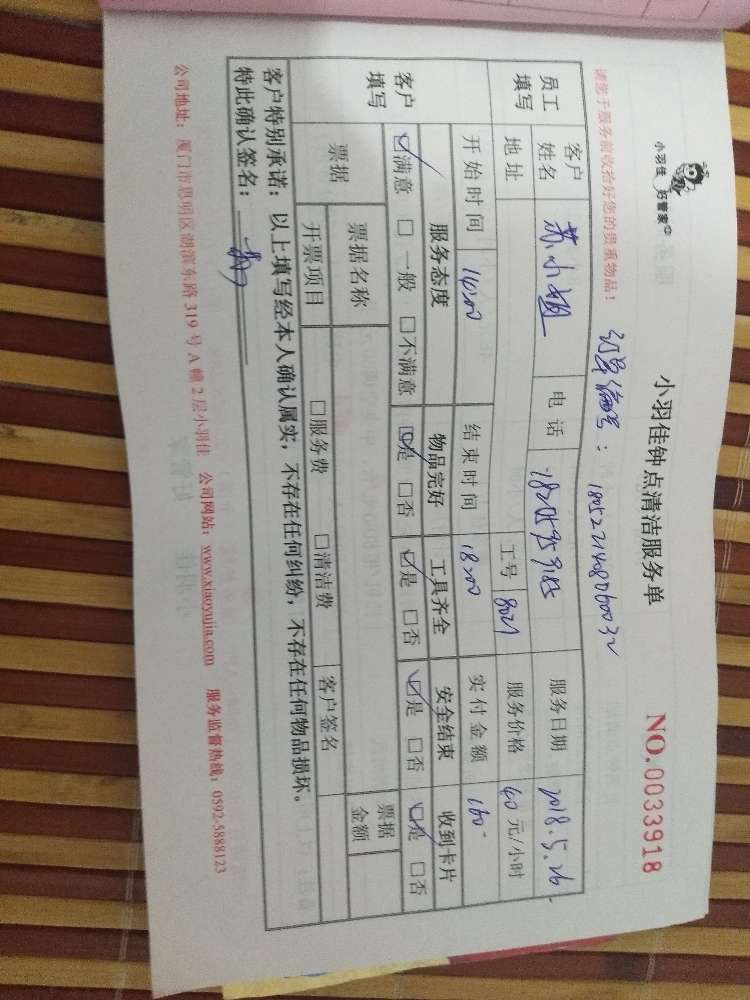 小羽佳 好管家
小羽佳钟点清洁服务单
NO.0033918
请您于服务前收拾好您的贵重物品！
订单编号：
员工填写
客户姓名 苏小姐 电话 服务日期 2018.5.26
地址 工号 8021 服务价格 40 元/小时
客户填写
开始时间 14:00 结束时间 18:00 实付金额 160-
服务态度 物品完好 工具齐全 安全结束 收到卡片
☑满意 □一般 □不满意 ☑是 □否 ☑是 □否 ☑是 □否 ☑是 □否
票据 票据名称 票据金额
开票项目 □服务费 □清洁费 客户签名
客户特别承诺：以上填写经本人确认属实，不存在任何纠纷，不存在任何物品损坏。
特此确认签名：
公司地址：厦门市思明区湖滨东路 319 号 A 幢 2 层小羽佳 公司网站：www.xiaoyujia.com 服务监督热线：0592-5888123